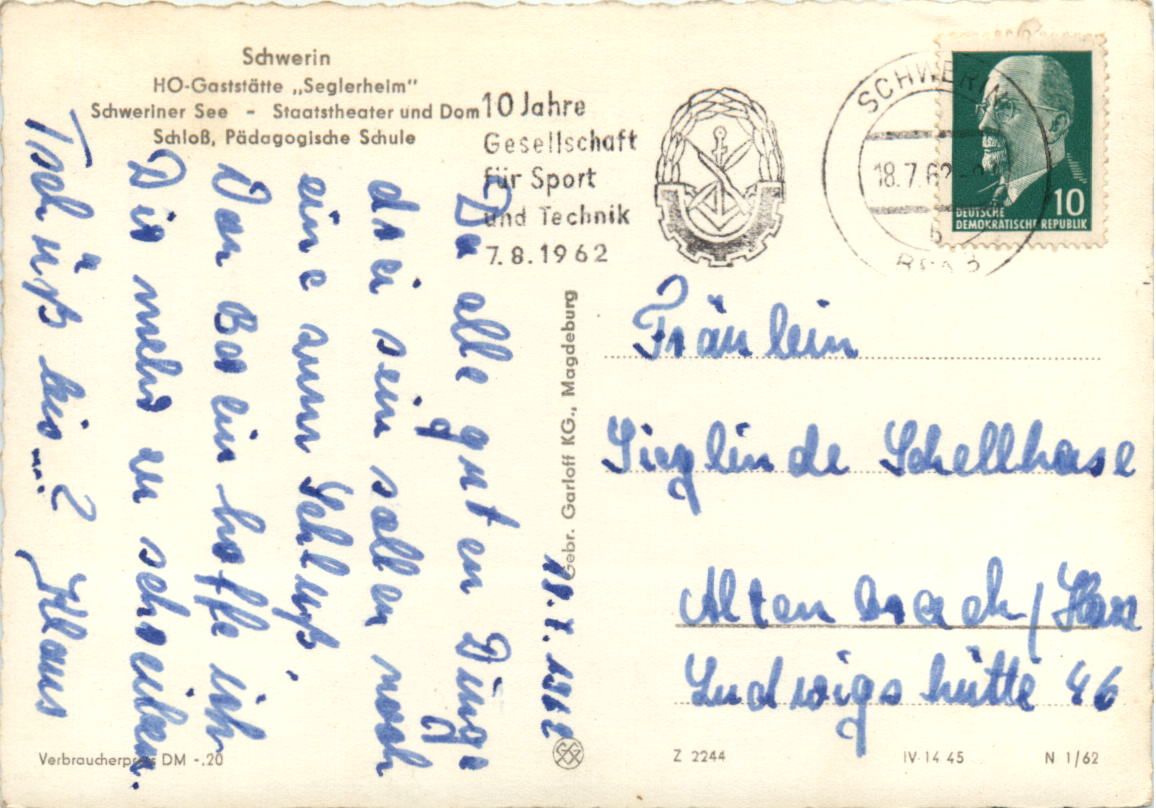 Schwerin
HO-Gaststätte „Seglerheim"
Schweriner See - Staatstheater und Dom
Schloß, Pädagogische Schule
10 Jahre
Gesellschaft
für Sport
und Technik
7.8.1962
SCHWERIN
18.7.62
10
DEUTSCHE
DEMOKRATISCHE REPUBLIK
18.7.1962
Da alle guten Dinge
drei sein sollen noch
eine zum Schluß.
Von Berlin hoffe ich
Dir mehr zu schreiben.
Tschüß bis...? Klaus
Gebr. Garloff KG., Magdeburg
Fräulein
Sieglinde Schellhase
Altenbrach/Harz
Ludwigshütte 46
Verbraucherpreis DM -.20
Z 2244
IV-14 45
N 1/62